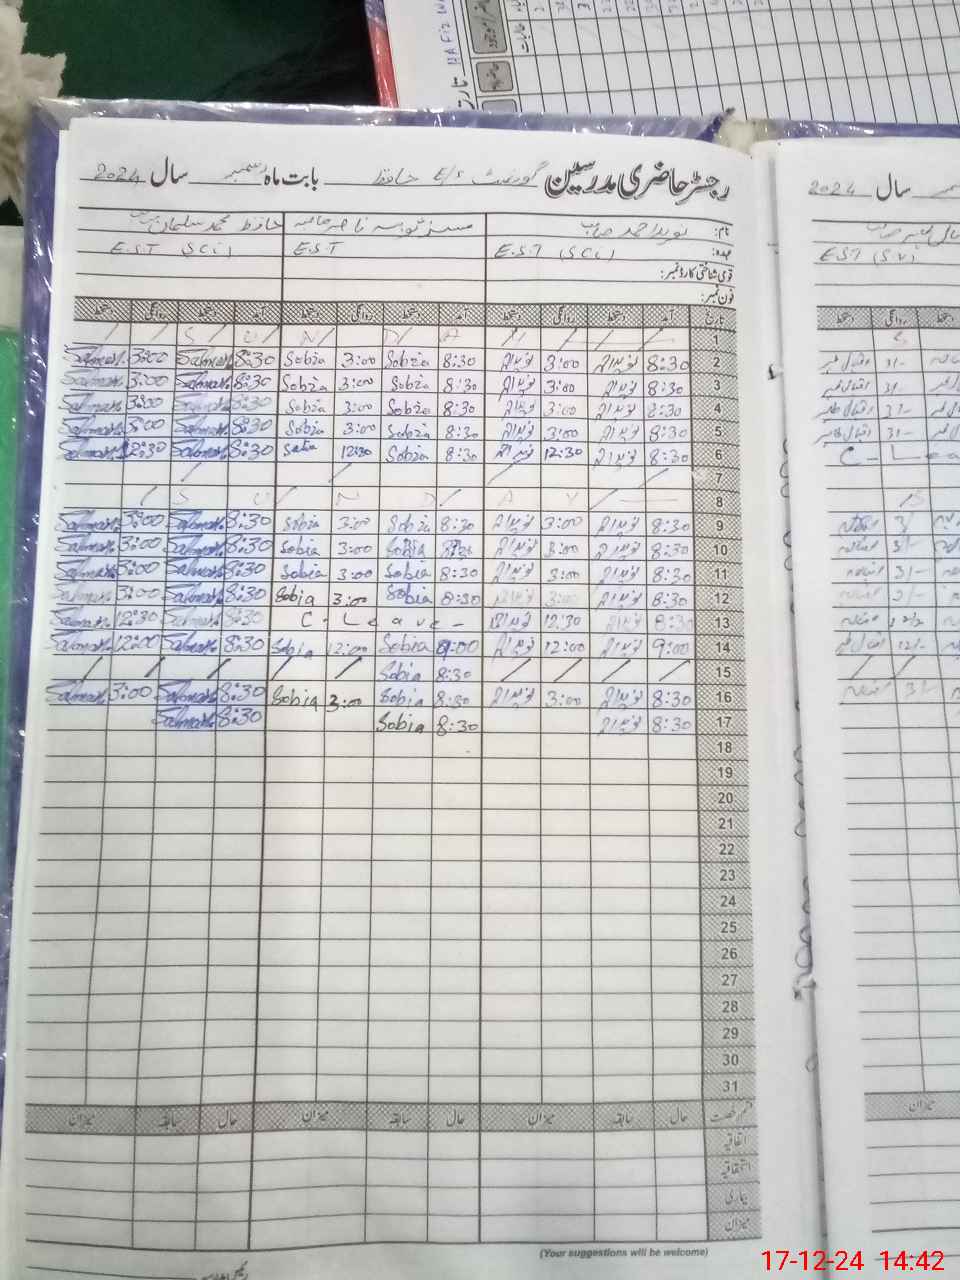 رجسٹر حاضری مدرسین گورنمنٹ E/S حافظ بابت ماہ دسمبر سال 2024
نام: نوید احمد صاحب مسز ثوبیہ ناصر صاحبہ حافظ محمد سلمان
عہدہ: E.S.T (Sci) E.S.T E.S.T (Sci)
قومی شناختی کارڈ نمبر:
فون نمبر:
تاریخ آمد دستخط روانگی دستخط آمد دستخط روانگی دستخط آمد دستخط روانگی دستخط
1 S U N D A Y
2 8:30 نوید 3:00 نوید 8:30 Sobia 3:00 Sobia 8:30 Salman 3:00 Salman
3 8:30 نوید 3:00 نوید 8:30 Sobia 3:00 Sobia 8:30 Salman 3:00 Salman
4 8:30 نوید 3:00 نوید 8:30 Sobia 3:00 Sobia 8:30 Salman 3:00 Salman
5 8:30 نوید 3:00 نوید 8:30 Sobia 3:00 Sobia 8:30 Salman 3:00 Salman
6 8:30 نوید 12:30 نوید 8:30 Sobia 12:30 Sobia 8:30 Salman 12:30 Salman
7
8 S U N D A Y
9 8:30 نوید 3:00 نوید 8:30 Sobia 3:00 Sobia 8:30 Salman 3:00 Salman
10 8:30 نوید 3:00 نوید Sobia 3:00 Sobia 8:30 Salman 3:00 Salman
11 8:30 نوید 3:00 نوید 8:30 Sobia 3:00 Sobia 8:30 Salman 3:00 Salman
12 8:30 نوید 3:00 نوید 8:30 Sobia 3:00 Sobia 8:30 Salman 3:00 Salman
13 8:30 نوید 12:30 نوید C - Leave - 8:30 Salman 12:30 Salman
14 9:00 نوید 12:00 نوید 9:00 Sobia 12:00 Sobia 8:30 Salman 12:00 Salman
15 8:30 Sobia
16 8:30 نوید 3:00 نوید 8:30 Sobia 3:00 Sobia 8:30 Salman 3:00 Salman
17 8:30 نوید 8:30 Sobia 8:30 Salman
18
19
20
21
22
23
24
25
26
27
28
29
30
31
قسم رخصت حال سابقہ میزان حال سابقہ میزان حال سابقہ میزان
اتفاقیہ
استحقاقیہ
بیماری
میزان
(Your suggestions will be welcome)
سال 2024
EST (SV)
دستخط روانگی دستخط
C - Lea
میزان
17-12-24 14:42